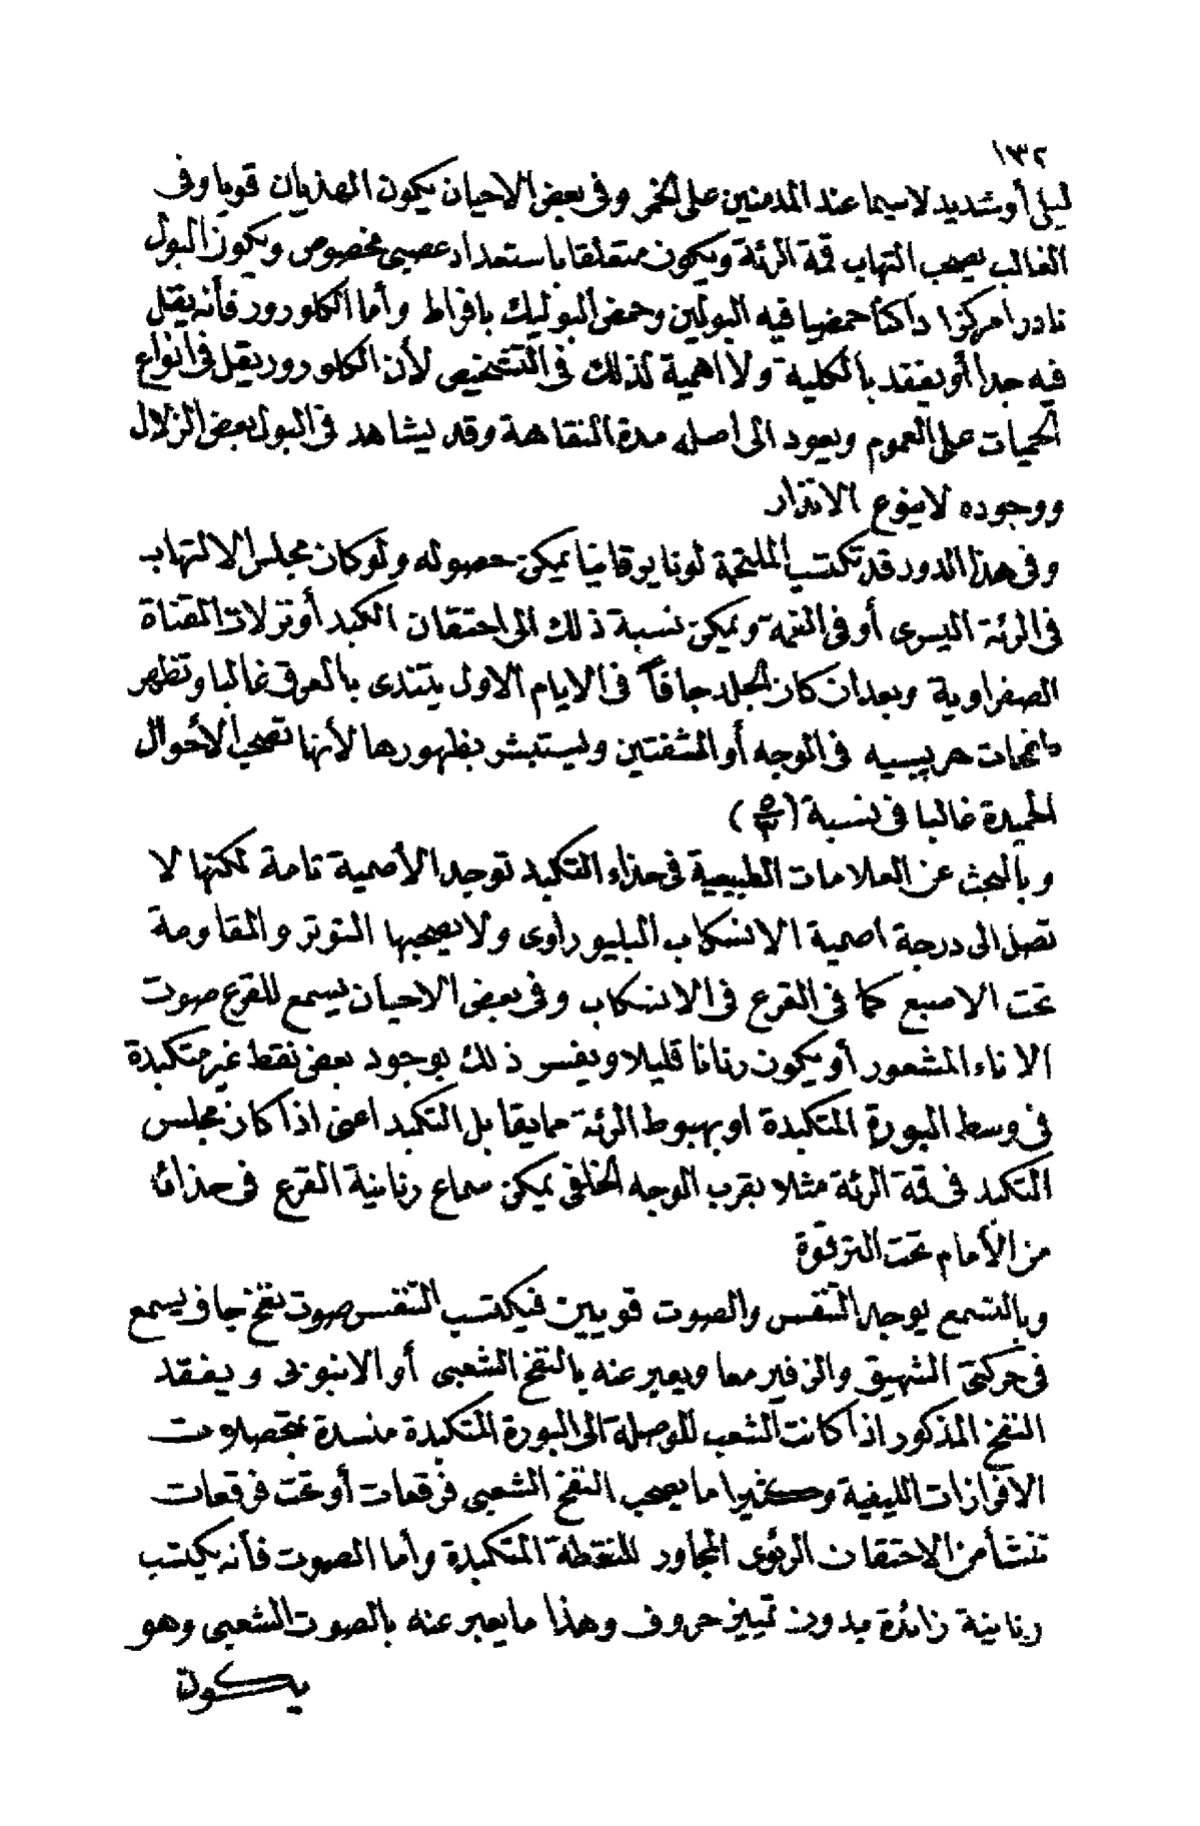 ١٣٢
ليلى أو شديد لاسيما عند المدمنين على الخمر وفى بعض الاحيان يكون الهذيان قويا وفى
الغالب يصحب التهاب قمة الرئة ويكون متعلقا باستعداد عصبى مخصوص ويكون البول
نادرا مركزا داكنا حمضيا فيه البولين وحمض البوليك بافراط وأما الكلورور فأنه يقل
فيه جدا أو يفقد بالكلية ولا اهمية لذلك فى التشخيص لأن الكلورور يقل فى انواع
الحميات على العموم ويعود الى اصله مدة النقاهة وقد يشاهد فى البول بعض الزلال
ووجوده لا ينوع الانذار
وفى هذا الدور قد تكتسب الملتحمة لونا يرقانيا يمكن حصوله ولو كان مجلس الالتهاب
فى الرئة اليسرى أو فى القمة ويمكن نسبة ذلك الى احتقان الكبد أو نزلات القناة
الصفراوية وبعد ان كان الجلد جافاً فى الايام الاول يتندى بالعرق غالبا وتظهر
طفحات هربيسيه فى الوجه أو الشفتين ويستبشر بظهورها لأنها تصحب الأحوال
الحميدة غالبا فى نسبة (٥/٣)
وبالبحث عن العلامات الطبيعية فى حذاء التكبد توجد الأصمية تامة لكنها لا
تصل الى درجة اصمية الانسكاب البليوراوى ولا يصحبها التوتر والمقاومة
تحت الاصبع كما فى القرع فى الانسكاب وفى بعض الاحيان يسمع للقرع صوت
الاناء المشعور أو يكون رنانا قليلا ويفسر ذلك بوجود بعض نقط غير متكبدة
فى وسط البورة المتكبدة او بهبوط الرئة مما يقابل التكبد اعنى اذا كان مجلس
التكبد فى قمة الرئة مثلا بقرب الوجه الخلفى يمكن سماع رنانية القرع فى حذائها
من الأمام تحت الترقوة
وبالتسمع يوجد التنفس والصوت قويين فيكتسب التنفس صوت نفخ جاف يسمع
فى حركتى الشهيق والزفير معا ويعبر عنه بالنفخ الشعبى أو الانبوبى ويفقد
النفخ المذكور اذا كانت الشعب الموصلة الى البورة المتكبدة منسدة بمتحصلات
الافرازات الليفية وكثيرا ما يصحب النفخ الشعبى فرقعات أو تحت فرقعات
تنشأ من الاحتقان الرئوى المجاور للنقطة المتكبدة وأما الصوت فأنه يكتسب
رنانية زائدة بدون تمييز حروف وهذا ما يعبر عنه بالصوت الشعبى وهو
يكون